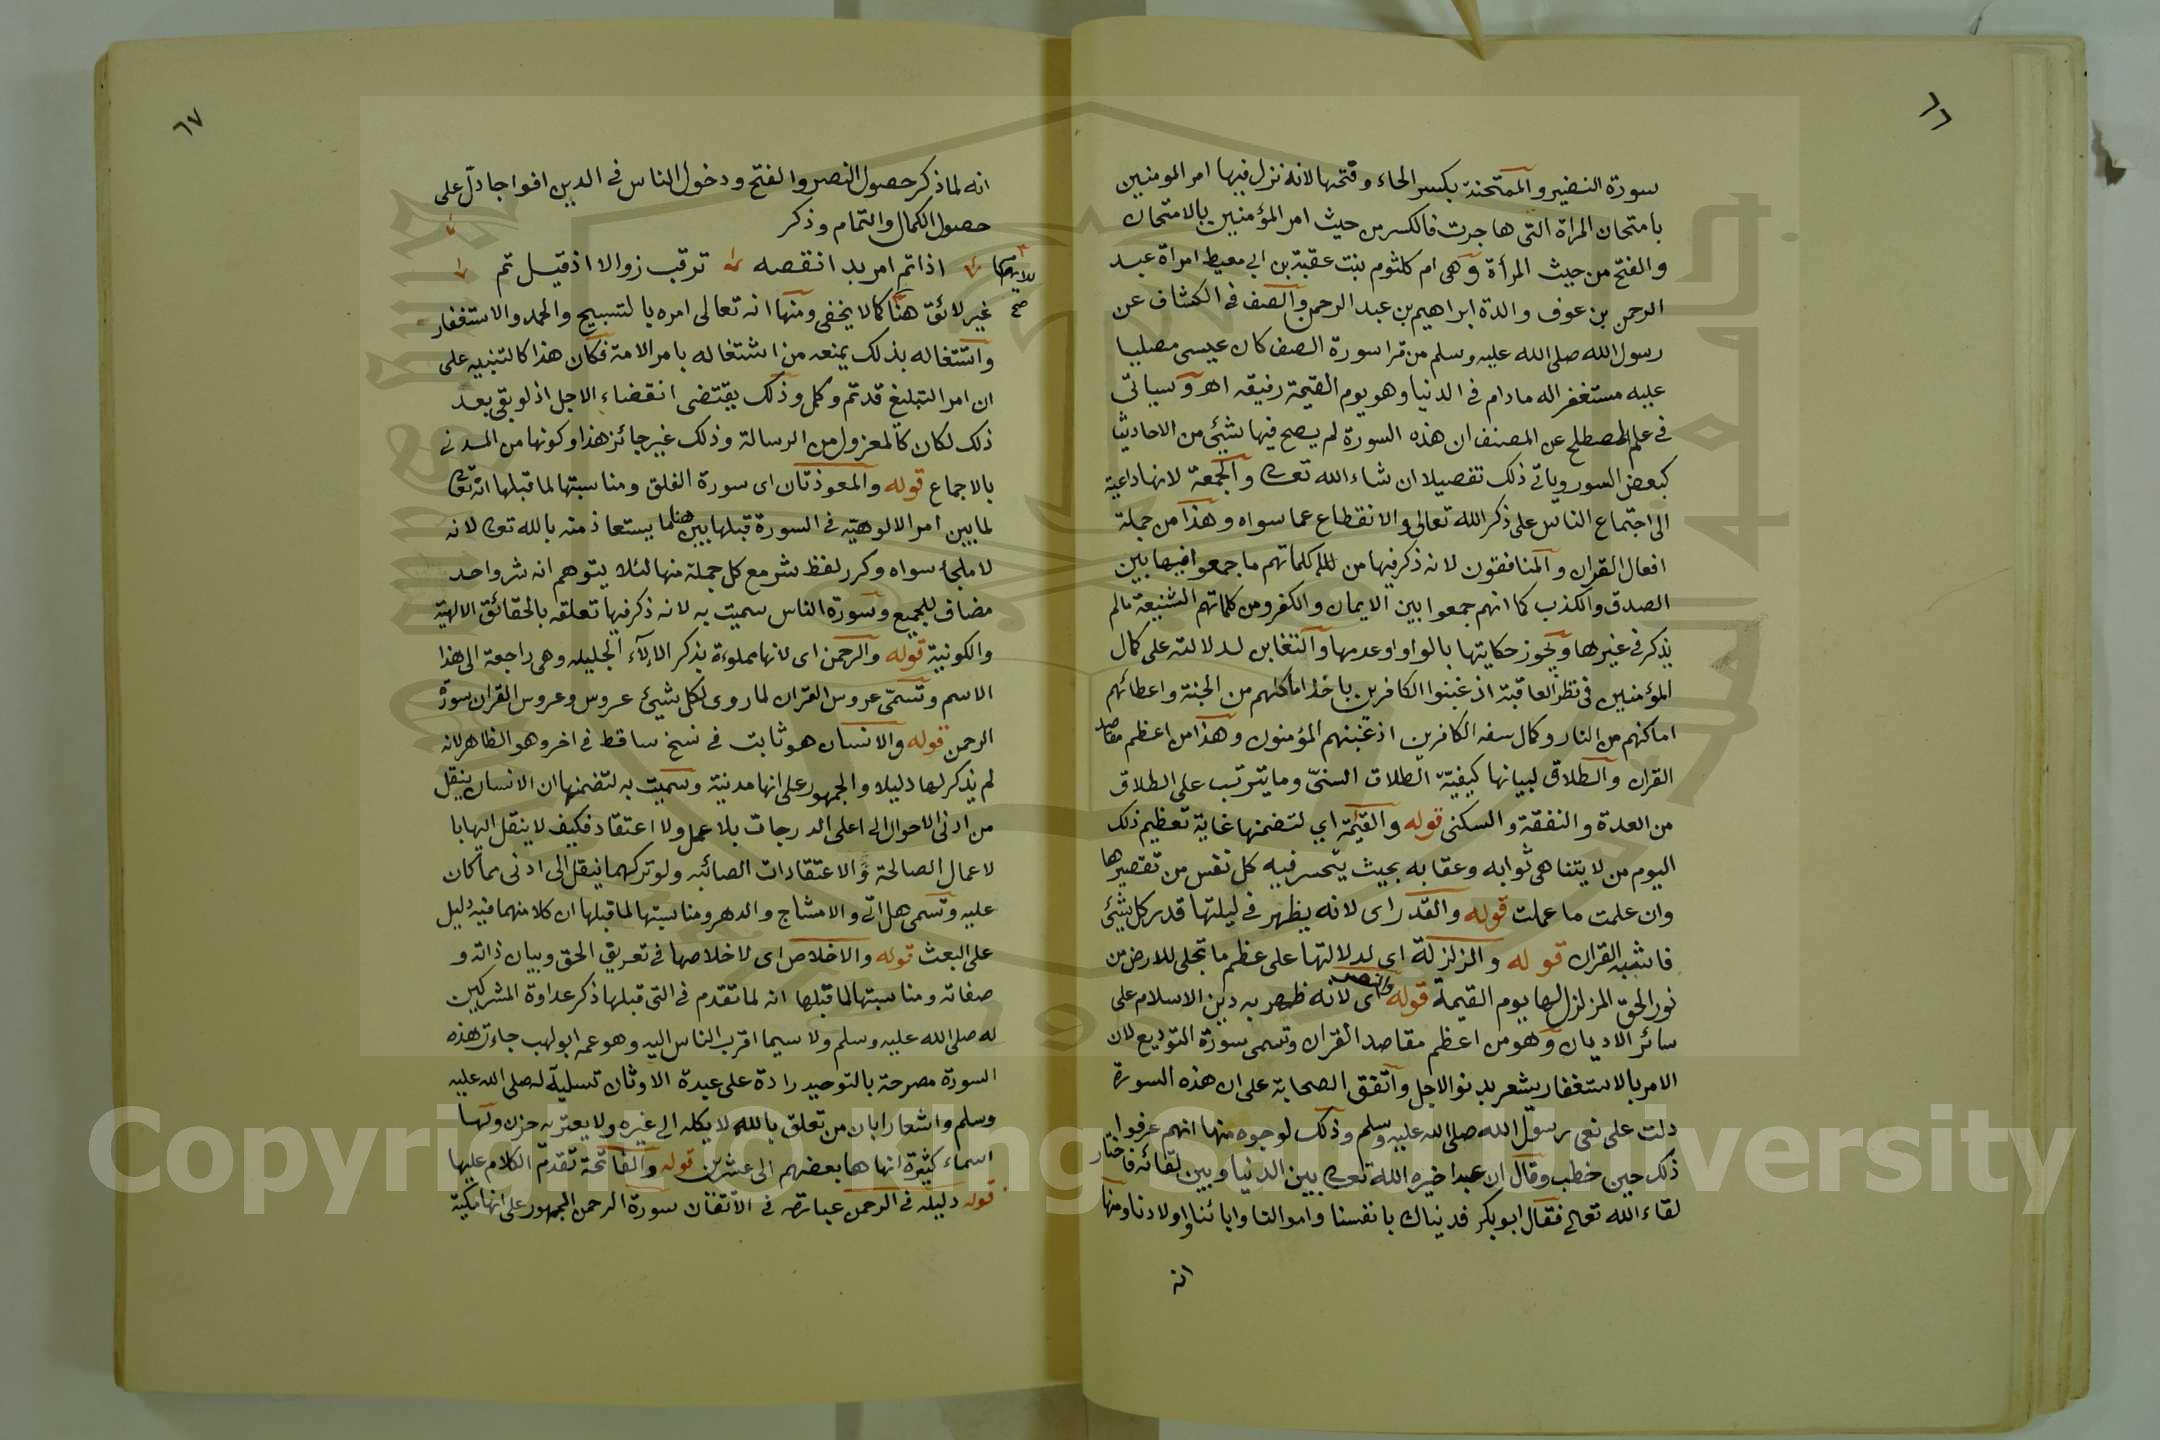 ٦٦
سورة النضير والممتحنة بكسر الحاء وفتحها لانه نزل فيها امر المومنين
بامتحان المراة التى هاجرت فالكسر من حيث امر المؤمنين بالامتحان
والفتح من حيث المرأة وهى ام كلثوم بنت عقبة بن ابى معيط امراة عبد
الرحمن بن عوف والدة ابراهيم بن عبد الرحمن والصف فى الكشاف عن
رسول الله صلى الله عليه وسلم من قرا سورة الصف كان عيسى مصليا
عليه مستغفرا له مادام فى الدنيا وهو يوم القيمة رفيقه اهـ وسياتى
فى علم المصطلح عن المصنف ان هذه السورة لم يصح فيها شيئ من الاحاديث
كبعض السور وياتى ذلك تفصيلا ان شاء الله تعا والجمعة لانها داعية
الى اجتماع الناس على ذكر الله تعالى والانقطاع عما سواه وهذا من جملة
افعال القران والمنافقون لانه ذكر فيها من كلماتهم ما جمعوا فيها بين
الصدق والكذب كما انهم جمعوا بين الايمان والكفر ومن كلماتهم الشنيعة مالم
يذكر فى غيرها ويجوز حكايتها بالواو اوعدمها والتغابن لدلالته على كمال
المؤمنين فى نظر العاقبة اذ غبنوا الكافرين باخذ اماكنهم من الجنة واعطائهم
اماكنهم من النار وكمال سفه الكافرين اذ غبنهم المؤمنون وهذا من اعظم مقاصد
القران والطلاق لبيانها كيفية الطلاق السنى ومايترتب على الطلاق
من العدة والنفقة والسكنى قوله والقيمة اي لتضمنها غاية تعظيم ذلك
اليوم من لايتناهى ثوابه وعقابه بحيث يتحسر فيه كل نفس من تقصيرها
وان علمت ما عملت قوله والقدر اى لانه يظهر فى ليلتها قدر كل شيئ
فاشبه القران قوله والزلزلة اى لدلالتها على عظم ما تجلى للارض من
نور الحق المزلزل لها يوم القيمة قوله والنصر اى لانه ظهر به دين الاسلام على
سائر الاديان وهو من اعظم مقاصد القران وتسمى سورة التوديع لان
الامر بالاستغفار يشعر بدنو الاجل واتفق الصحابة على ان هذه السورة
دلت على نعى رسول الله صلى الله عليه وسلم وذلك لوجوه منها انهم عرفوا
ذلك حين خطب وقال ان عبدا خيره الله تعا بين الدنيا وبين لقائه فاختار
لقاء الله تعالى فقال ابو بكر فديناك بانفسنا واموالنا وابائنا واولادنا ومنها
انه
٦٧
انه لما ذكر حصول النصر والفتح ودخول الناس فى الدين افواجا دل على
حصول الكمال والتمام وذكر
اذا تم امر بدا نقصه ترقب زوالا اذ قيل تم
غير لائق هنا كما لا يخفى ومنها انه تعالى امره بالتسبيح والحمد والاستغفار
صح
واشتغاله بذلك يمنعه من اشتغاله بامر الامة فكان هذا كالتنبيه على
ان امر التبليغ قد تم وكمل وذلك يقتضى انقضاء الاجل اذ لو بقى بعد
ذلك لكان كالمعزول من الرسالة وذلك غير جائز هذا وكونها من المدنى
بالاجماع قوله والمعوذتان اى سورة الفلق ومناسبتها لما قبلها انه تعا
لما بين امر الالوهية فى السورة قبلها بين هنا ما يستعاذ منه بالله تعا لانه
لا ملجا سواه وكرر لفظ شر مع كل جملة منها لئلا يتوهم انه شر واحد
مضاف للجميع وسورة الناس سميت به لانه ذكر فيها تعلقه بالحقائق الالهية
والكونية قوله والرحمن اى لانها مملوءة بذكر الالآء الجليله وهى راجعة الى هذا
الاسم وتسمى عروس القران لما روى لكل شيئ عروس وعروس القران سورة
الرحمن قوله والانسان هو ثابت فى نسخ ساقط فى اخر وهو الظاهر لانه
لم يذكر لها دليلا والجمهور على انها مدنية وسميت به لتضمنها ان الانسان ينقل
من ادنى الاحوال الى اعلى الدرجات بلا عمل ولا اعتقاد فكيف لا ينقل اليها با
لاعمال الصالحة والاعتقادات الصائبه ولو تركهما ينقل الى ادنى مما كان
عليه وتسمى هل اتى والامشاج والدهر ومناسبتها لما قبلها ان كلا منهما فيه دليل
على البعث قوله والاخلاص اى لاخلاصها فى تعريق الحق وبيان ذاته و
صفاته ومناسبتها لما قبلها انه لما تقدم فى التى قبلها ذكر عداوة المشركين
له صلى الله عليه وسلم ولا سيما اقرب الناس اليه وهو عمه ابو لهب جاءت هذه
السورة مصرحة بالتوحيد رادة على عبدة الاوثان تسلية له صلى الله عليه
وسلم واشعارا بان من تعلق بالله لا يكله الى غيره ولا يعتريه حزن ولها
اسماء كثيرة انهاها بعضهم الى عشرين قوله والفاتحة تقدم الكلام عليها
قوله دليله فى الرحمن عبارته فى الاتقان سورة الرحمن الجمهور على انها مكية
Copyright © King Saud University
جامعة الملك سعود
King Saud University
1957